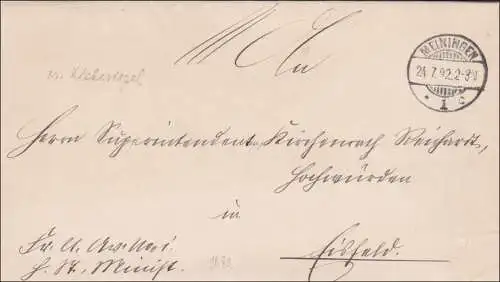 An
MEININGEN
24.7.92.2-3N.
* 1 c
m. Klebesiegel
Herrn Superintendent, Kirchenrath Reichardt,
Hochwürden
in
Eisfeld.
H. St. Minist.
1892